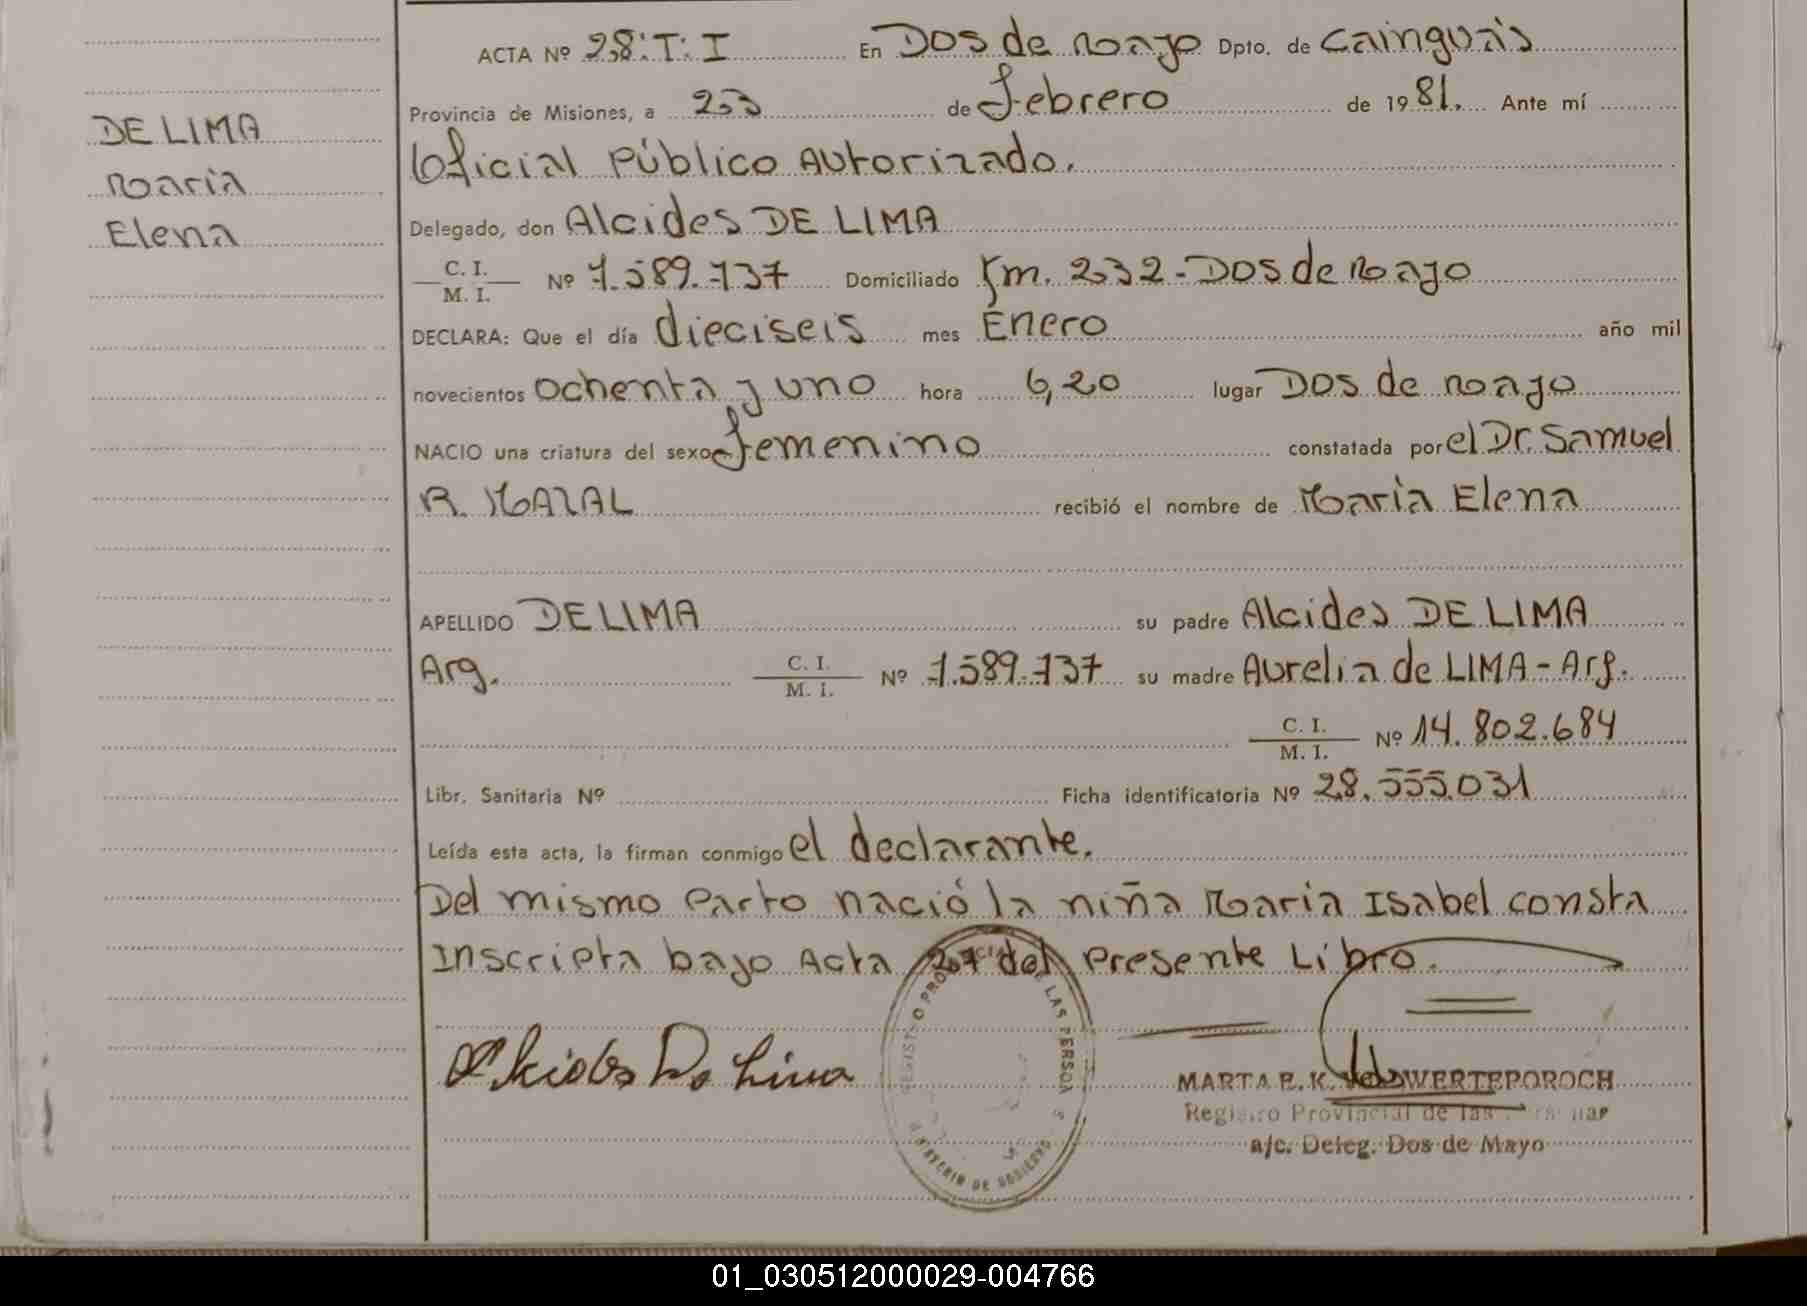 ACTA Nº 28:T:I En Dos de Mayo Dpto. de Cainguás
Provincia de Misiones, a 23 de Febrero de 1981. Ante mí
DE LIMA
Oficial Público Autorizado.
Maria
Elena
Delegado, don Alcides DE LIMA
C. I.
M. I. Nº 7.589.737 Domiciliado Km. 232 - Dos de Mayo
DECLARA: Que el día dieciseis mes Enero año mil
novecientos ochenta y uno hora 6,20 lugar Dos de Mayo
NACIO una criatura del sexo femenino constatada por el Dr. Samuel
R. MAZAL recibió el nombre de Maria Elena
APELLIDO DE LIMA su padre Alcides DE LIMA
Arg. C. I.
M. I. Nº 7.589.737 su madre Aurelia de LIMA - Arg.
C. I.
M. I. Nº 14.802.684
Libr. Sanitaria Nº Ficha identificatoria Nº 28.555.031
Leída esta acta, la firman conmigo el declarante.
Del mismo Parto nació la niña Maria Isabel consta
Inscripta bajo Acta 27 del Presente Libro.
Alcides De Lima
MARTA E. K. WERTEPOROCH
Registro Provincial de las
a/c. Deleg. Dos de Mayo
01_030512000029-004766